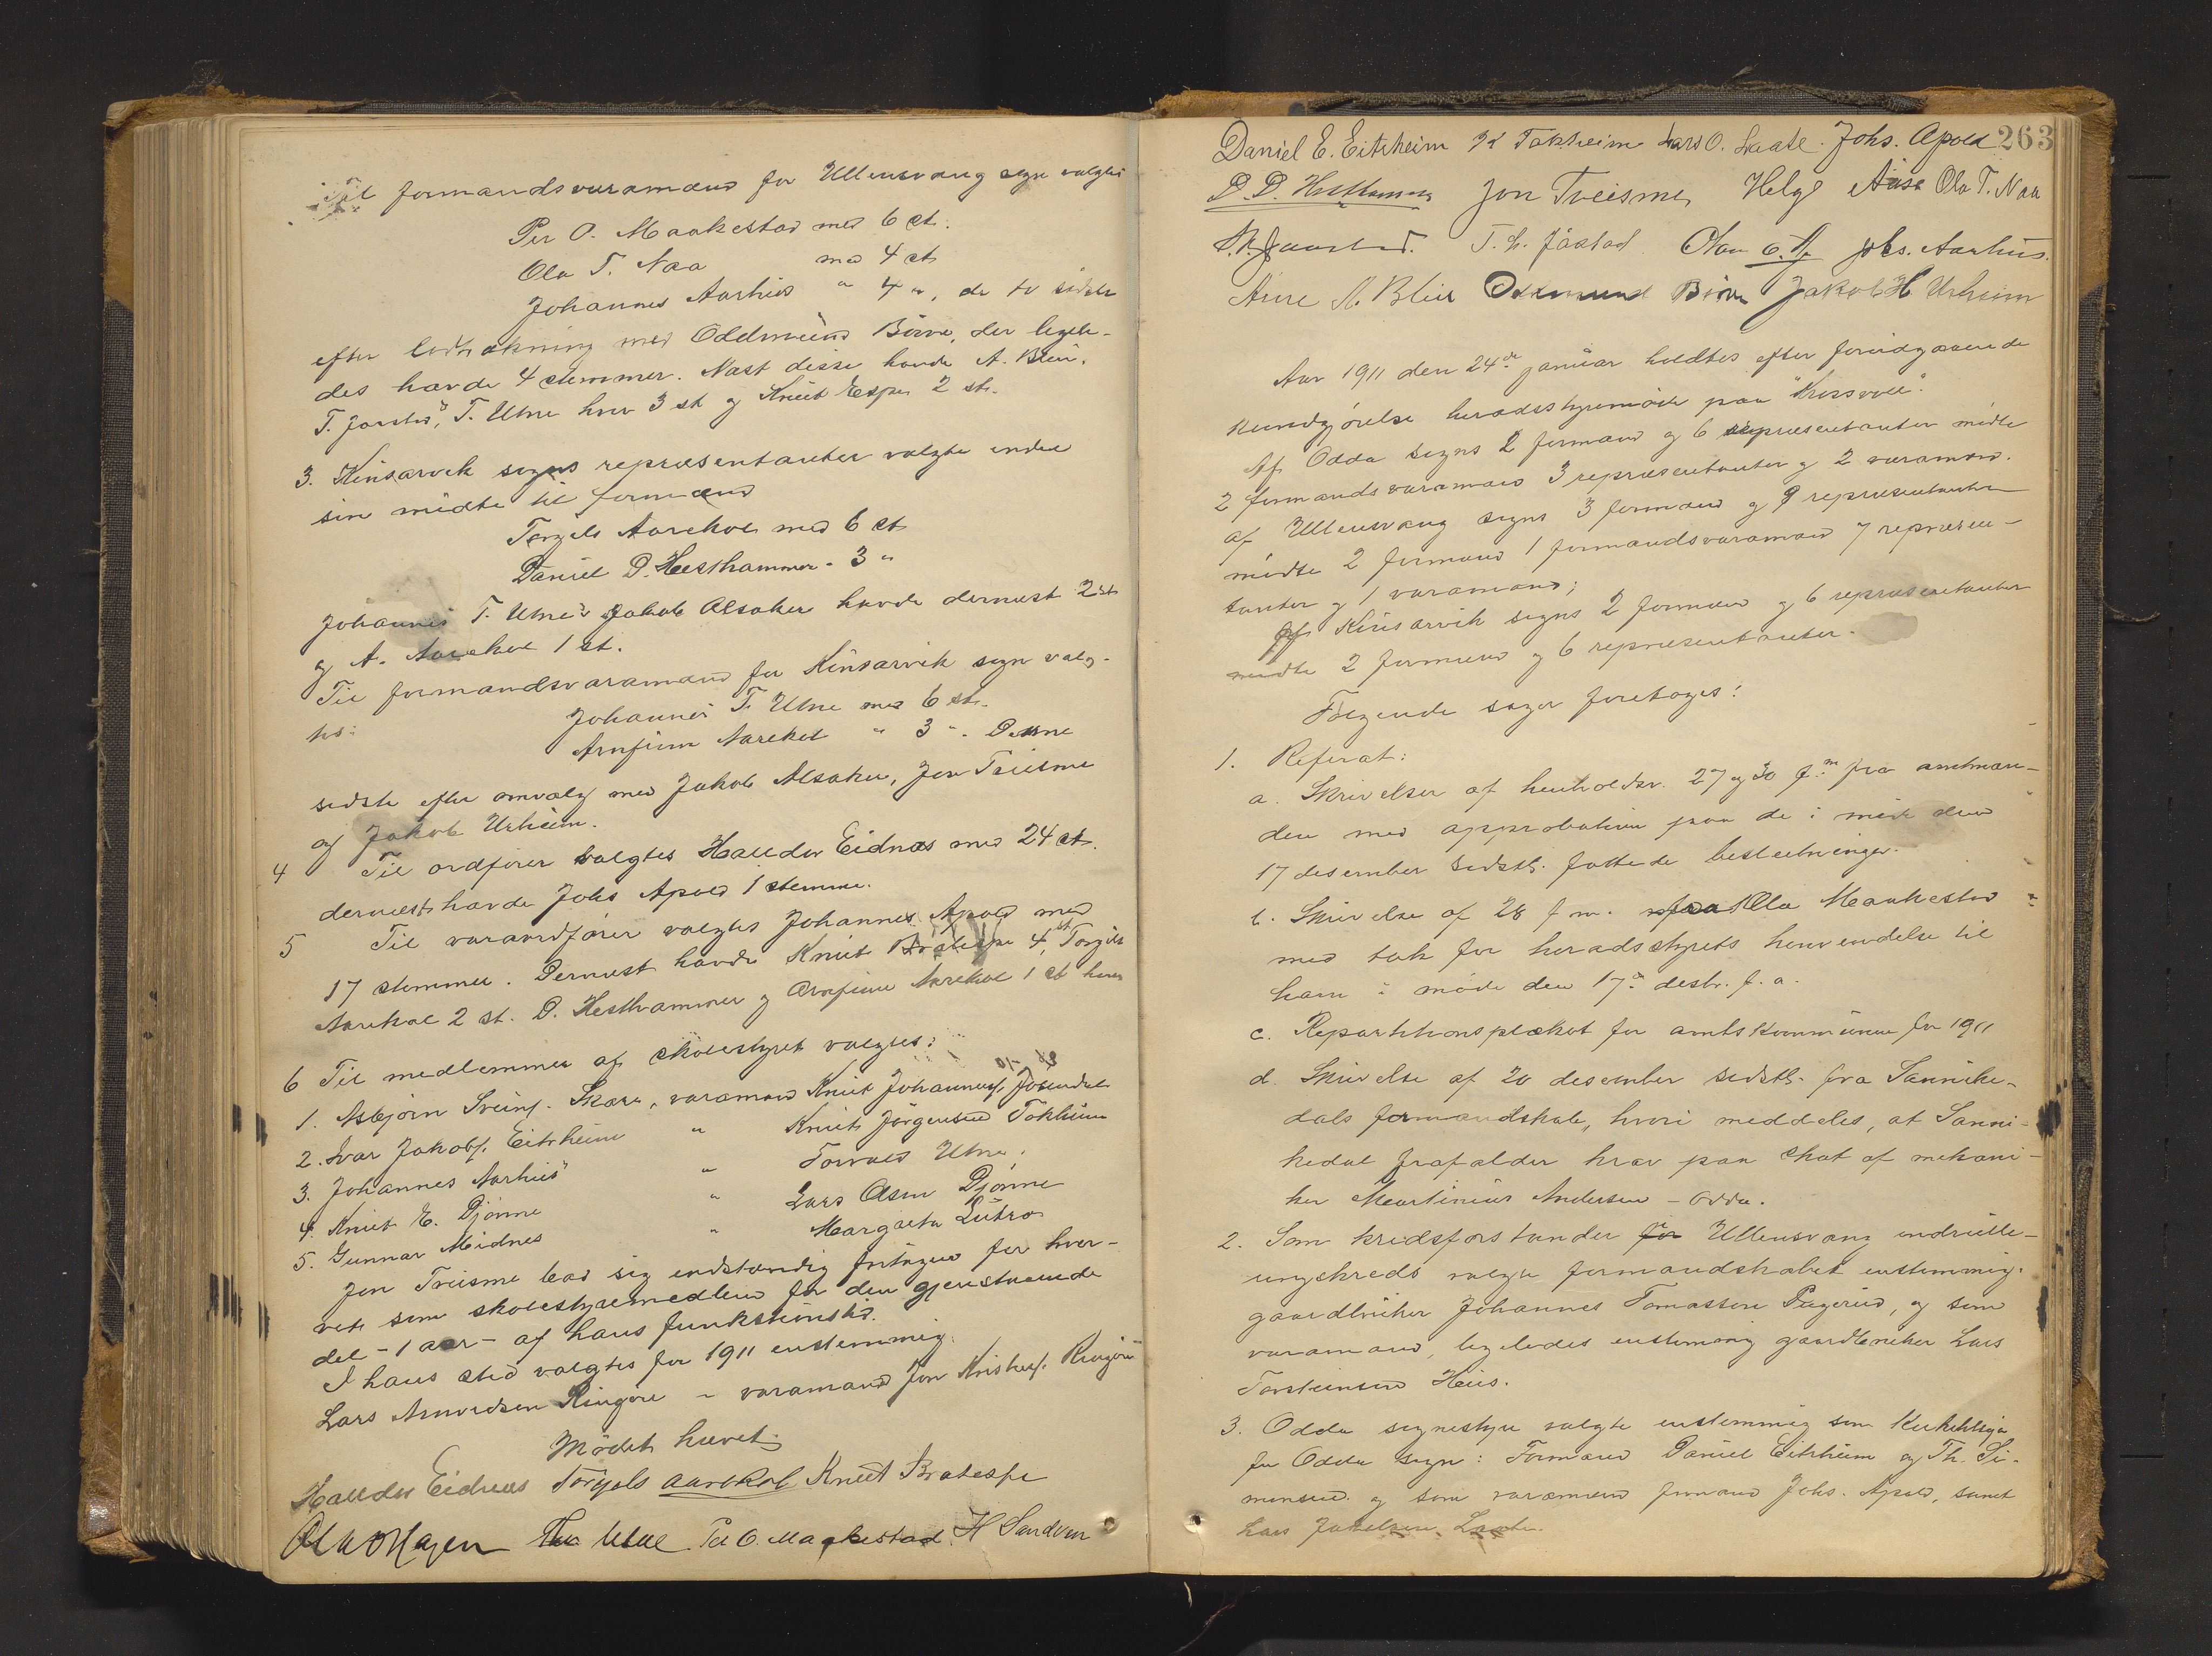 Til formandsvaramænd for Ullensvang sogn valgtes
Per O. Maakestad med 6 st.
Ola T. Naa med 4 st
Johannes Aarhus " 4 ", de to sidste
efter lodtrækning med Oddmund Börve, der ligele-
des havde 4 stemmer. Næst disse havde A. Bleie,
T. Jaastad, T. Utne hver 3 st og Knut Espe 2 st.
3. Kinsarvik sogns repræsentanter valgte inden
sin midte til formænd
Torgils Aarekol med 6 st
Daniel D. Hesthammer - 3 "
Johannes T. Utne & Jakob Alsaker havde dernæst 2 st
og A. Aarekol 1 st.
Til formandsvaramænd for Kinsarvik sogn valg-
tes:
Johannes T. Utne med 6 st.
Arnfinn Aarekol " 3 ". Denne
sidste efter omvalg med Jakob Alsaker, Jon Treisme
og Jakob Urheim.
4 Til ordförer valgtes Halldor Eidnes med 24 st.
dernæst havde Johs Apold 1 stemme.
5 Til varaordförer valgtes Johannes Apold med
17 stemmer. Dernæst havde Knut Bratespe 4 st, Torgils
Aarekol 2 st. D. Hesthammer og Arnfinn Aarekol 1 st hver
6 Til medlemmer af skolestyret valgtes:
1. Asbjörn Sveins. Skare, varamand Knut Johannes. Jösendal
2. Ivar Jakobs. Eitrheim " Knut Jörgensen Tokheim
3. Johannes Aarhus " Torvald Utne.
4. Knut E. Djönne " Lars Olsen Djönne
5. Gunnar Midnes " Margreta Lutro
Jon Treisme bad sig indstændig fritagen for hver-
vet som skolestyremedlem for den gjenstaaende
del - 1 aar - af hans funktionstid.
I hans sted valgtes for 1911 enstemmig
Lars Amundsen Ringöie - varamand Jon Kristofs. Ringöie
Mödet hævet.
Halldor Eidnes Torgils Aarekol Knut Bratespe
Olav Hagen Utne Per O. Maakestad H Sandven
263
Daniel E. Eitrheim K Tokheim Lars O. Laate. Johs. Apold
D. D. Hesthammer Jon Treisme, Helge Aase Ola T. Naa
Jaastad. T. L. Jåstad Olav Johs. Aarhus.
Aure A. Bleie Oddmund Börve Jakob H Urheim
Aar 1911 den 24de januar holdtes efter forudgaaende
kundgjörelse heradsstyremöde paa "Krossvoll".
Af Odda sogns 2 formænd og 6 repræsentanter mödte
2 formandsvaramænd 3 repræsentanter og 2 varamænd.
af Ullensvang sogns 3 formænd og 9 repræsentanter
mödte 2 formænd 1 formandsvaramand 7 repræsen-
tanter og 1 varamand;
af Kinsarvik sogns 2 formænd og 6 repræsentanter
mödte 2 formænd og 6 repræsentanter.
Fölgende sager foretoges:
1. Referat:
a. Skrivelser af henholdsv. 27 og 30 f. m fra amtman-
den med approbation paa de i möte den
17 desember sidstl. fattede beslutninger.
b. Skrivelse af 28 f m. fra Ola Maakestad
med tak for heradsstyrets henvendelse til
ham i möde den 17de desbr. f. a.
c. Repartitionsplakat for amtskommunen for 1911
d. Skrivelse af 20 desember sidstl. fra Sannike-
dals formandskab, hvori meddeles, at Sanni-
kedal frafalder krav paa skat af mekani-
ker Martinius Andersen - Odda.
2. Som kredsforstander for Ullensvang indrulle-
ringskreds valgte formandskabet enstemmig.
gaardbruker Johannes Tomassen Pugerud, og som
varamand, ligeledes enstemmig gaardbruker Lars
Torsteinsen Heus.
3. Odda sognestyre valgte enstemmig som
for Odda sogn: Formand Daniel Eitrheim og Th. Si-
monsen og som varamænd formand Johs. Apold, samt
Lars Jakobsen